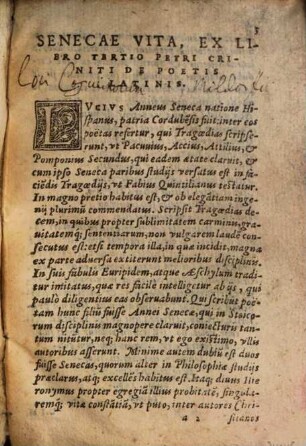 3
SENECAE VITA, EX LI-
BRO TERTIO PETRI CRI-
NITI DE POETIS
LATINIS.
LVCIVS Anneus Seneca natione Hi-
spanus, patria Cordubēsis fuit: inter eos
poëtas refertur, qui Tragœdias scripse-
runt, vt Pacuuius, Actius, Attilius, &
Pomponius Secundus, qui eadem ætate claruit, &
cum ipso Seneca paribus studijs versatus est in fa-
ciēdis Tragœdijs, vt Fabius Quintilianus testatur.
In magno pretio habitus est, & ob elegātiam inge-
nij plurimū commendatus. Scripsit Tragœdias de-
cem, in quibus propter sublimitatem carminū, gra-
uitatemq; sententiarum, non vulgarem laudē con-
secutus est: etsi tempora illa, in quæ incidit, magna
ex parte aduersa extiterunt melioribus disciplinis.
In suis fabulis Euripidem, atque Æschylum tradi-
tur imitatus, quæ res facilè intelligetur ab ijs, qui
paulò diligentius eas obseruabunt. Qui scribūt poë-
tam hunc filiū fuisse Annei Senecæ, qui in Stoico-
rum disciplinis magnopere claruit, coniecturis tan-
tum nituntur, neq; hanc rem, vt ego existimo, vllis
autoribus asserunt. Minimè autem dubiū est duos
fuisse Senecas, quorum alter in Philosophiæ studijs
præclarus, atq; excellēs habitus est. Itaq; diuus Hie-
ronymus propter egregiā illius probitatē, singula-
remq; vitæ constātiā, vt puto, inter autores Chri-
a 2 stianos